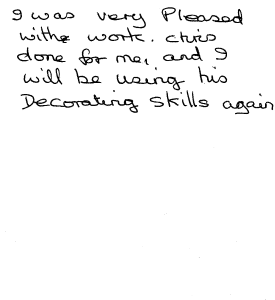 I was very Pleased
withe work. chris
done for me, and I
will be using his
Decorating skills again